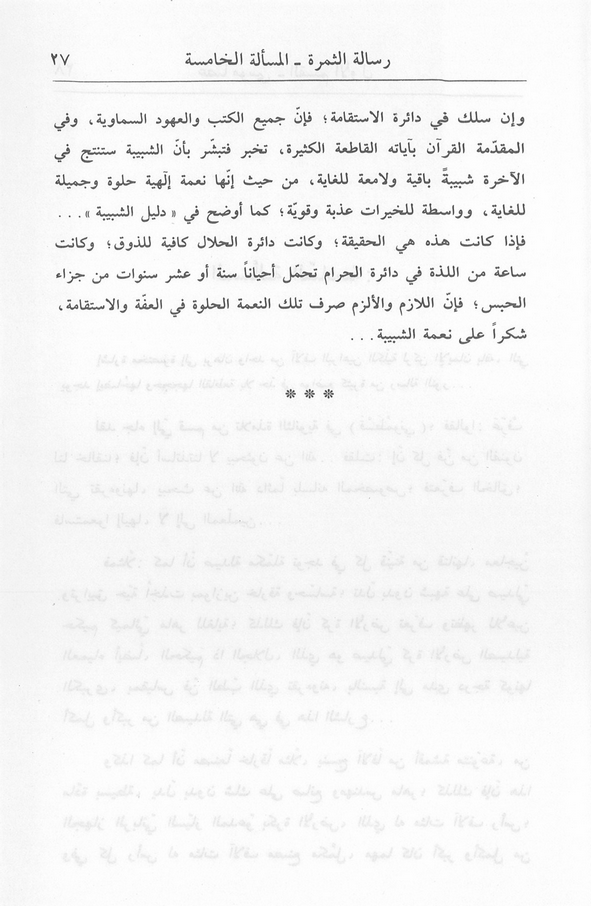 رسالة الثمرة ـ المسألة الخامسة ٢٧
وإن سلك في دائرة الاستقامة؛ فإنّ جميع الكتب والعهود السماوية، وفي
المقدّمة القرآن بآياته القاطعة الكثيرة، تخبر فتبشّر بأنّ الشبيبة ستنتج في
الآخرة شبيبةً باقية ولامعة للغاية، من حيث إنّها نعمة إلٓهية حلوة وجميلة
للغاية، وواسطة للخيرات عذبة وقويّة؛ كما أوضح في «دليل الشبيبة»...
فإذا كانت هذه هي الحقيقة؛ وكانت دائرة الحلال كافية للذوق؛ وكانت
ساعة من اللذة في دائرة الحرام تحمّل أحياناً سنة أو عشر سنوات من جزاء
الحبس؛ فإنّ اللازم والألزم صرف تلك النعمة الحلوة في العفّة والاستقامة،
شكراً على نعمة الشبيبة...
* * *